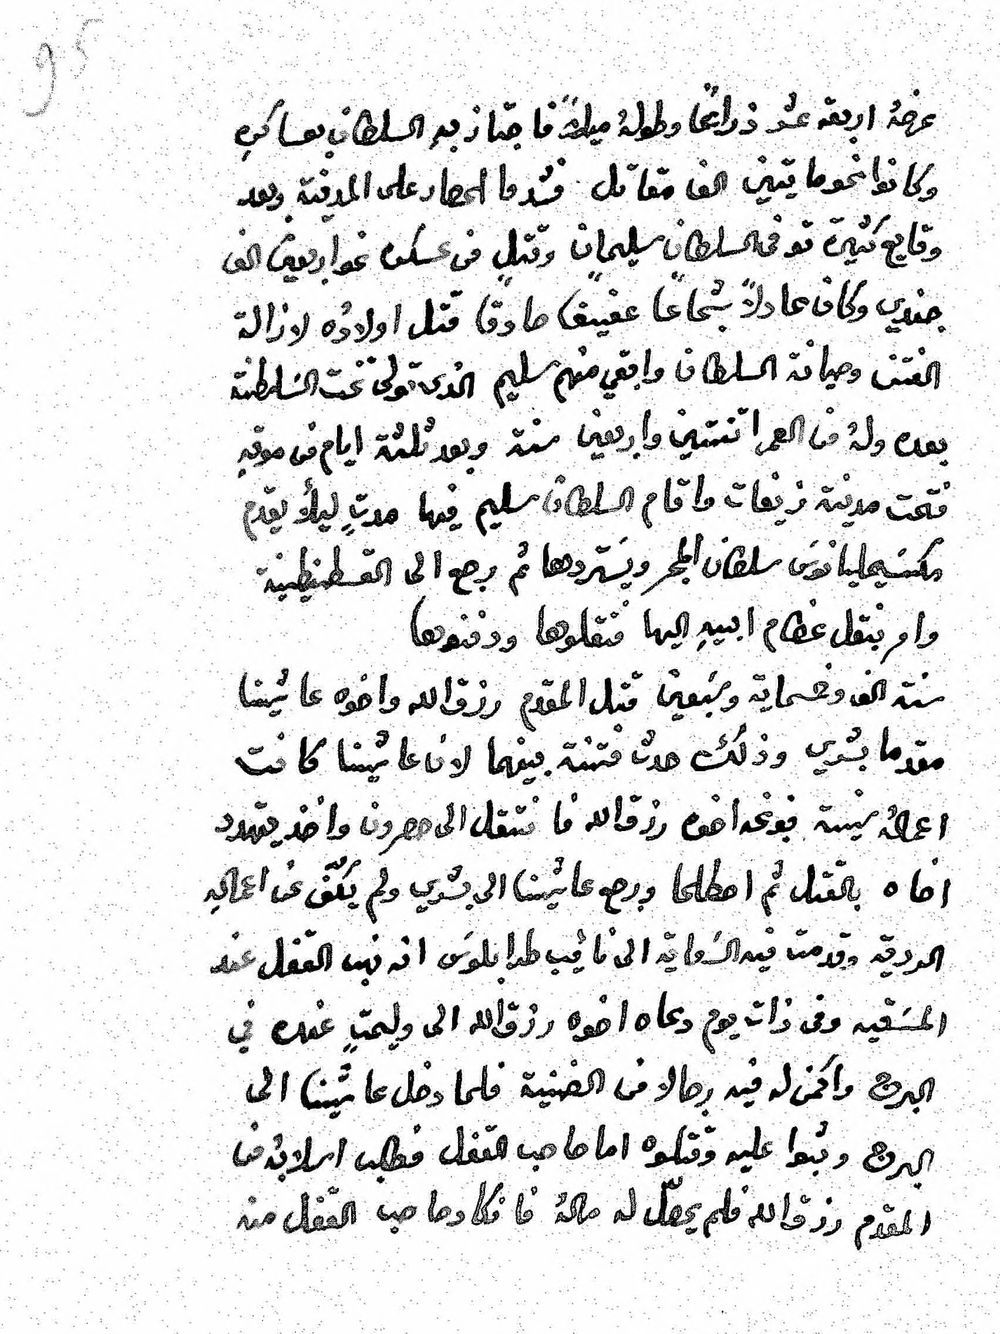 95
عرضهُ اربعة عشر ذراعًا وطولهُ ميلًا فاجتاز بهِ السلطان بعساكرهِ
وكانوا نحو مايتين الف مقاتل فشدوا الحصار على المدينة وبعد
وقايع كثيرة توفى السلطان سليمان وقتل من عسكره نحو اربعين الف
جندي وكان عادلاً شجاعاً عفيفا صادقا قتل اولادُه لازالة
الفتن وصيانة السلطان وابقي منهم سليم الذى تولى تخت السَلطنة
بعده ولهُ من العمر اثنتين واربعين سنة وبعد ثلثة ايام من موتهِ
فتحت مدينة زيغات واقام السلطان سليم فيها مدةٍ ليلاً يقدم
مكسيمليانوس سلطان المجر ويستردها ثم رجع الى القسطنطينية
وامر بنقل عظام ابيهِ اليها فنقلوها ودفنوها
سنة الف وخمسماية وسَبعين قتل المقدم رزق الله واخوه عاشينا
مقدما بشري وذلك حدث فتنة بينهما لان عاشينا كانت
اعمالهُ سَيئة فوبخه اخوه رزق الله فانتقل الى حصرون واخذ يتهدد
اخاه بالقتل ثم اصطلحا ورجع عاشينا الى بشري ولم يكفّ عن اعمالهِ
الردية وقدمت فيه السَعاية الى نايب طرابلوس انه نهب القفل عند
المسَقيه وفى ذات يوم دعاه اخوه رزق الله الى وليمةٍ عنده في
البرج واكمن له فيه رجالا من الضنية فلما دخل عاشينا الى
البرج وثبوا عليه وقتلوه اما صاحب القفل فطلب اسلابهُ من
المقدم رزق الله فلم يحصّل له مالهُ فانكاد صاحب القفل منه